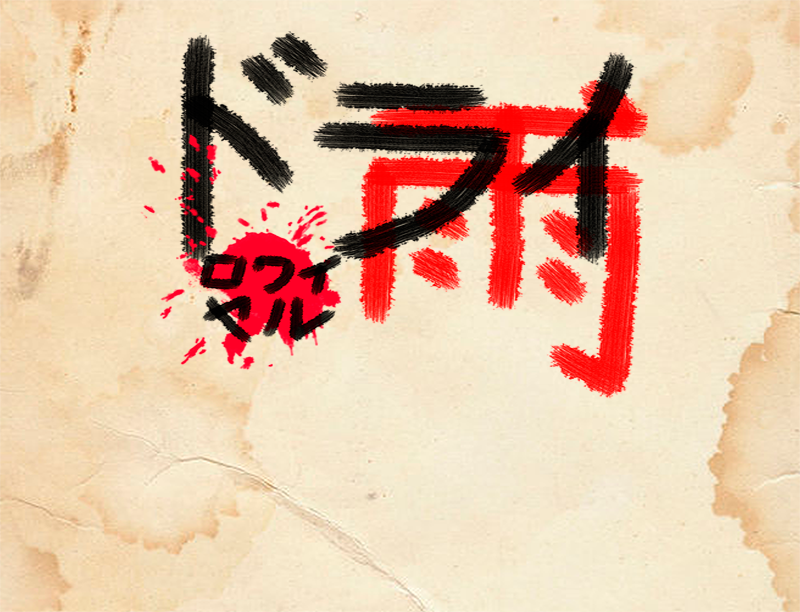 ドライ
雨
ロワイ
ヤル